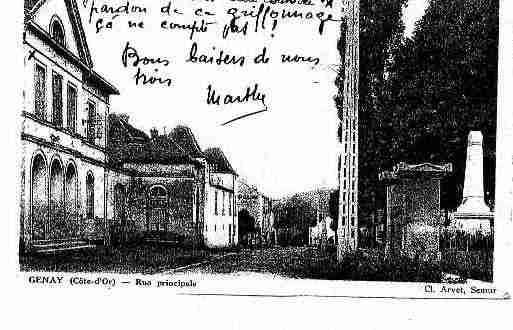 pardon de ce griffonnage
ça ne compte pas !!
Bons baisers de nous
trois
Marthe
GENAY (Côte-d'Or) — Rue principale
Cl. Arvet, Semur